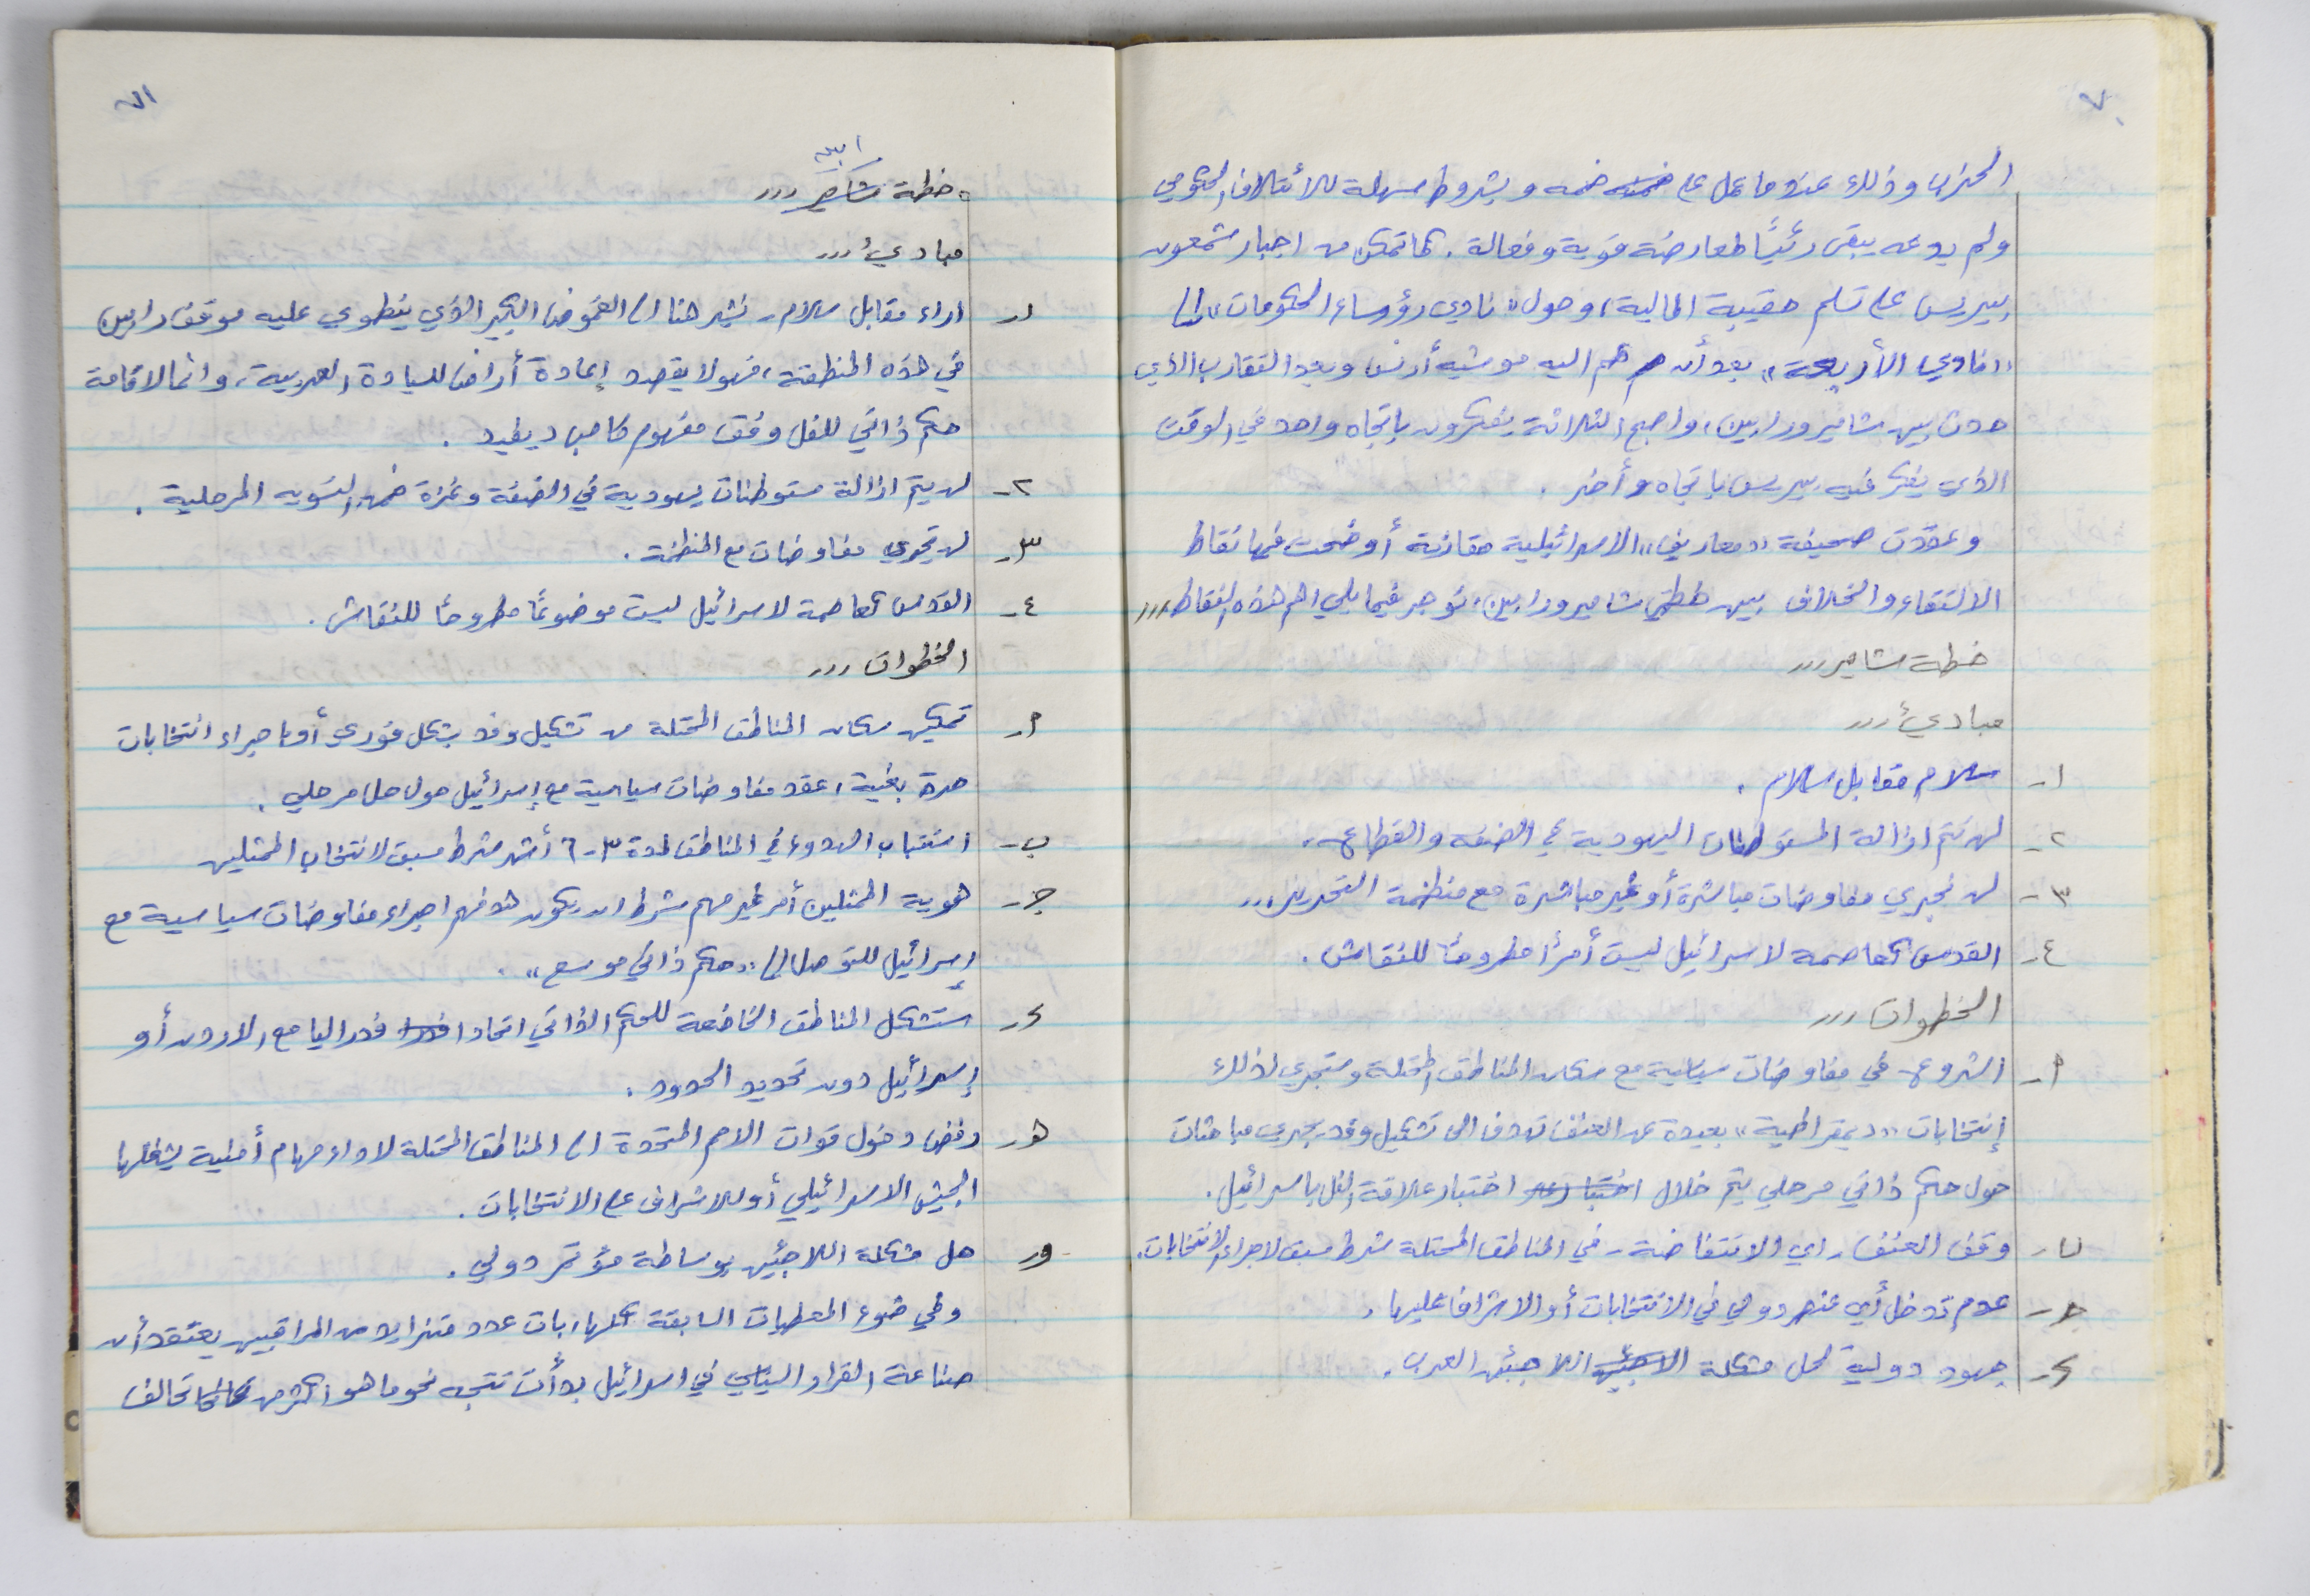 ٧٠
الحزب وذلك عندما عمل على ضمه وبشروط سهلة للائتلاف الحكومي
ولم يدعه يبقى رئيسًا لمعارضة قوية وفعالة. كما تمكن من اجبار شمعون
بيريس على تسلم حقيبة المالية، وحول "نادي رؤوساء الحكومات" إلى
"نادي الأربعة" بعد أن ضم اليه موشيه أرنس وبعد التقارب الذي
حدث بين شامير ورابين، واصبح الثلاثة يفكرون باتجاه واحد في الوقت
الذي يفكر فيه بيريس باتجاه أخر.
وعقدت صحيفة "معاريف" الاسرائيلية مقارنة أوضحت فيها نقاط
الالتقاء والخلاف بين خطتي شامير ورابين، نوجز فيما يلي اهم هذه النقاط...
خطة شامير...
مبادئ...
١- سلام مقابل سلام.
٢- لن تتم ازالة المستوطنات اليهودية في الضفه والقطاع.
٣- لن نجري مفاوضات مباشرة أو غير مباشرة مع منظمة التحرير...
٤- القدس كعاصمه لاسرائيل ليست أمرًا مطروحًا للنقاش.
الخطوات...
أ- الشروع في مفاوضات سياسية مع سكان المناطق المحتلة وستجري لذلك
إنتخابات "ديمقراطية" بعيدة عن العنف تهدف الى تشكيل وفد يجري مباحثات
حول حكم ذاتي مرحلي يتم خلال اختبار علاقة الفل باسرائيل.
ب- وقف العنف - اي الانتفاضة - في المناطق المحتلة شرط مسبق لاجراء الانتخابات.
جـ- عدم تدخل أي عنصر دولي في الانتخابات أو الاشراف عليها.
د- جهود دولية لحل مشكلة اللاجئين العرب.
٧١
خطة رابين...
مبادئ...
١- اراء مقابل سلام - نشير هنا الى الغموض الكبير الذي ينطوي عليه موقف رابين
في هذه المنطقة، فهو لا يقصد إعادة أراض للسيادة العربية، وانما لاقامة
حكم ذاتي للفل وفق مفهوم كامب ديفيد.
٢- لن يتم ازالة مستوطنات يهودية في الضفة وغزة ضمن التسويه المرحلية.
٣- لن تجري مفاوضات مع المنظمة.
٤- القدس كعاصمة لاسرائيل ليست موضوعًا مطروحًا للنقاش.
الخطوات...
أ- تمكين سكان المناطق المحتلة من تشكيل وفد بشكل فوري أو اجراء انتخابات
حرة بغية، عقد مفاوضات سياسية مع إسرائيل حول حل مرحلي.
ب- استتباب الهدوء في المناطق لمدة ٣-٦ أشهر شرط مسبق لانتخاب الممثلين
جـ- هوية الممثلين أمر غير مهم شرط ان يكون هدفهم اجراء مفاوضات سياسية مع
إسرائيل للتوصل إلى "حكم ذاتي موسع".
د- ستشكل المناطق الخاضعة للحكم الذاتي اتحادا فدراليا مع الاردن أو
إسرائيل دون تحديد الحدود.
هـ- رفض دخول قوات الامم المتحدة الى المناطق المحتلة لاداء مهام أمنية يشغلها
الجيش الاسرائيلي أو للاشراف على الانتخابات.
و- حل مشكلة اللاجئين بوساطة مؤتمر دولي.
وفي ضوء المعطيات السابقة كلها، بات عدد متزايد من المراقبين يعتقد أن
صناعة القرار السياسي في اسرائيل بدأت تتجه نحو ما هو اكثر من تحالف